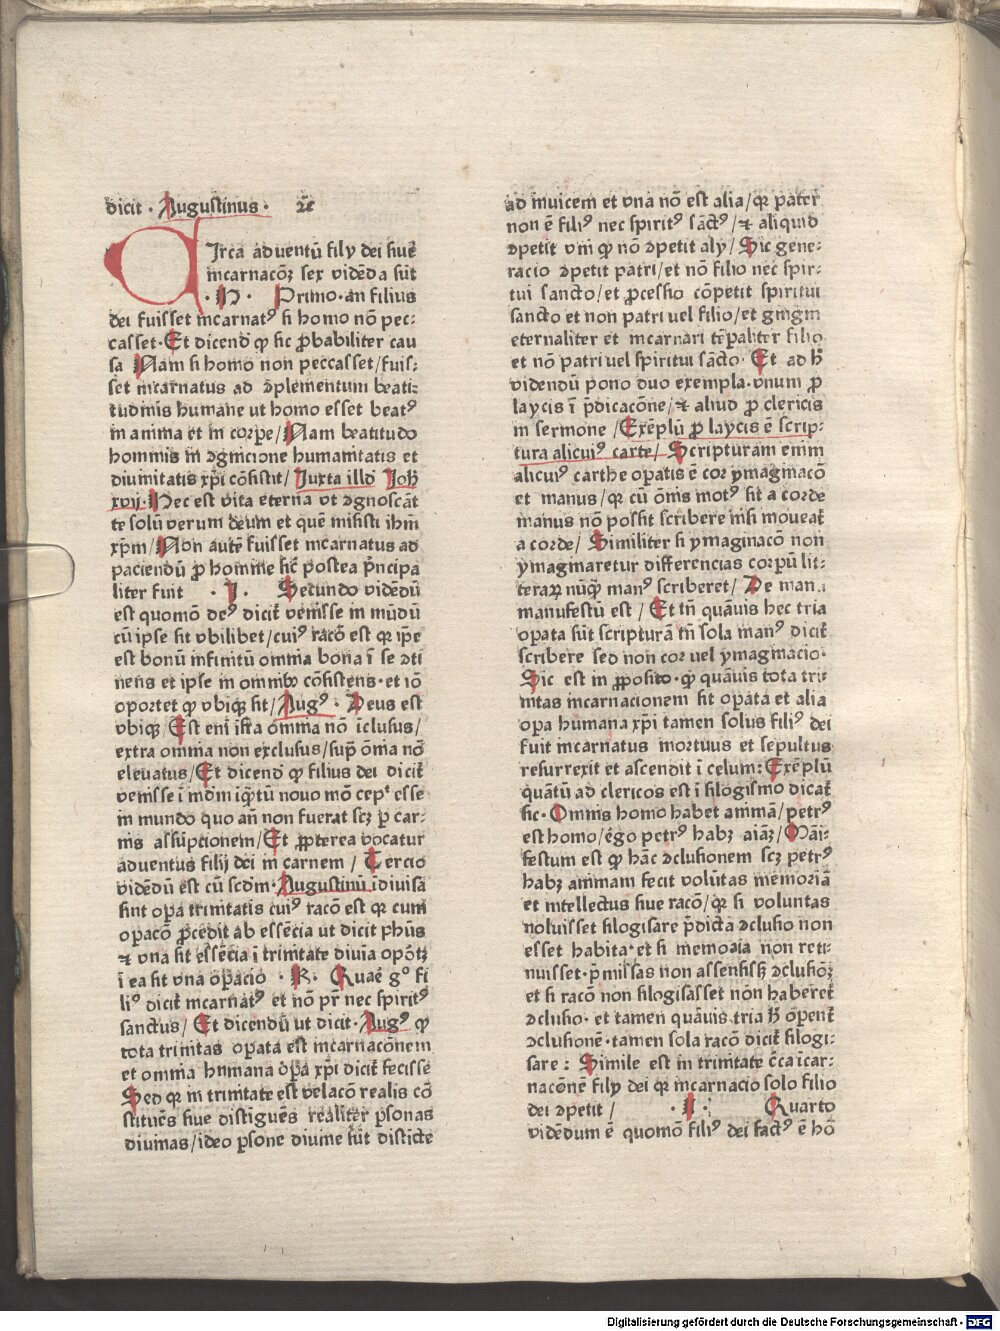 dicit · Augustinus · ⁊cͣ
CIrca aduentū filij dei siue
incarnacōꝫ sex vidēda sūt
· H · Primo · an filius
dei fuisset incarnatꝰ si homo nō pec⸗
casset · Et dicendū ꝙ sic ꝓbabiliter cau
sa Nam si homo non peccasset / fuis⸗
set incarnatus ad ꝯplementum beati⸗
tudinis humane ut homo esset beatꝰ
in anima et in corꝑe / Nam beatitudo
hominis in ꝯgnicione humanitatis et
diuinitatis xp̄i cōsistit / Iuxta illd̄ Joh̄
xvij · Hec est vita eterna vt ꝯgnoscāt
te solū verum deum et quē misisti ihm̄
xp̄m / Non autē fuisset incarnatus ad
paciendū ꝓ homine sic̄ postea p̄ncipa
liter fuit · I · Secundo vidēdū
est quomō deꝰ dicit̄ venisse in mūdū
cū ipse sit vbilibet / cuiꝰ racō est qꝛ ip̄e
est bonū infinitū omnia bona ī se ꝯti
nens et ipse in omnibꝫ cōsistens · et iō
oportet ꝙ vbiqꝫ sit / Augꝰ · Deus est
vbiqꝫ / Est enī īfra omnia nō īclusus /
extra omnia non exclusus / sup̄ ōnia nō
eleuatus / Et dicend̄ ꝙ filius dei dicit̄
venisse ī mdm̄ īqͣtū nouo mō cepͭ esse
in mundo quo an̄ non fuerat scꝫ ꝑ car⸗
nis assūptionem / Et ꝓpterea vocatur
aduentus filij dei in carnem / Tercio
vidēdū est cū scdm̄ · Augustinū īdiuisa
sint oꝑa trinitatis cuiꝰ racō est qꝛ cum
oꝑacō ꝓcedit ab essēcia ut dicit phūs
⁊ vna sit essēcia ī trinitate diuīa opōtꝫ
ī ea sit vna oꝑacio · K · Quaē gͦ fi
liꝰ dicit̄ incarnatꝰ et nō pr̄ nec spiritꝰ
sanctus / Et dicendū ut dicit · Augꝰ ꝙ
tota trinitas oꝑata est incarnacōnem
et omnia humana oꝑa xp̄i dicit̄ fecisse
Sed qꝛ in trinitate est relacō realis cō
stituēs siue distiguēs realiter ꝑsonas
diuinas / ideo ꝑsone diuine sūt distīcte
ad inuicem et vna nō est alia / qꝛ pater
non ē filiꝰ nec spiritꝰ sāctꝰ / ⁊ aliquid
ꝯpetit vni ꝙ nō ꝯpetit alij / Sic gene⸗
racio ꝯpetit patri / et nō filio nec spir⸗
tui sancto / et ꝓcessio cōpetit spiritui
sancto et non patri uel filio / et gingni
eternaliter et incarnari tēpaliter filio
et nō patri vel spiritui sācto · Et ad h̄
videndū pono duo exempla · vnum ꝓ
laycis ī p̄dicacōne / ⁊ aliud ꝓ clericis
in sermone / Exēplū ꝓ laycis ē scrip⸗
tura alicuiꝰ carte / Scripturam enim
alicuiꝰ carthe oꝑatis ē cor ymaginacō
et manus / qꝛ cū ōnis motꝰ sit a corde
manus nō possit scribere nisi moueat̄
a corde / Similiter si ymaginacō non
ymaginaretur differencias corꝑū lit⸗
teraꝝ nūqͣ manꝰ scriberet / De manu
manifestū est / Et tn̄ quāuis hec tria
oꝑata sūt scripturā tn̄ sola manꝰ dicit̄
scribere sed non cor uel ymaginacio ·
Sic est in ꝓposito · ꝙ quāuis tota tri⸗
nitas incarnacionem sit oꝑata et alia
oꝑa humana xp̄i tamen solus filiꝰ dei
fuit incarnatus mortuus et sepultus
resurrexit et ascendit ī celum : Exēplū
quātū ad clericos est ī silogismo dicat̄
sic · Omnis homo habet animā / petrꝰ
est homo / ergo petrꝰ habꝫ aīaꝫ / Maī⸗
festum est ꝙ hāc ꝯclusionem scꝫ petrꝰ
habꝫ animam fecit volūtas memoriā
et intellectus siue racō / qꝛ si voluntas
noluisset silogisare p̄dictā ꝯclusio non
esset habita · et si memoria non reti⸗
nuisset · p̄missas non assensisꝫ ꝯclusiōꝫ
et si racō non silogisasset nōn haberet̄
ꝯclusio · et tamen quāuis tria h̄ oꝑent̄
ꝯclusionē · tamen sola racō dicit̄ silogi⸗
sare : Simile est in trinitate c̄ca īcar⸗
nacōnē filij dei qꝛ incarnacio solo filio
dei ꝯpetit / · L · Quarto
vidēdum ē quomō filiꝰ dei factꝰ ē hō
Digitalisierung gefördert durch die Deutsche Forschungsgemeinschaft - DFG